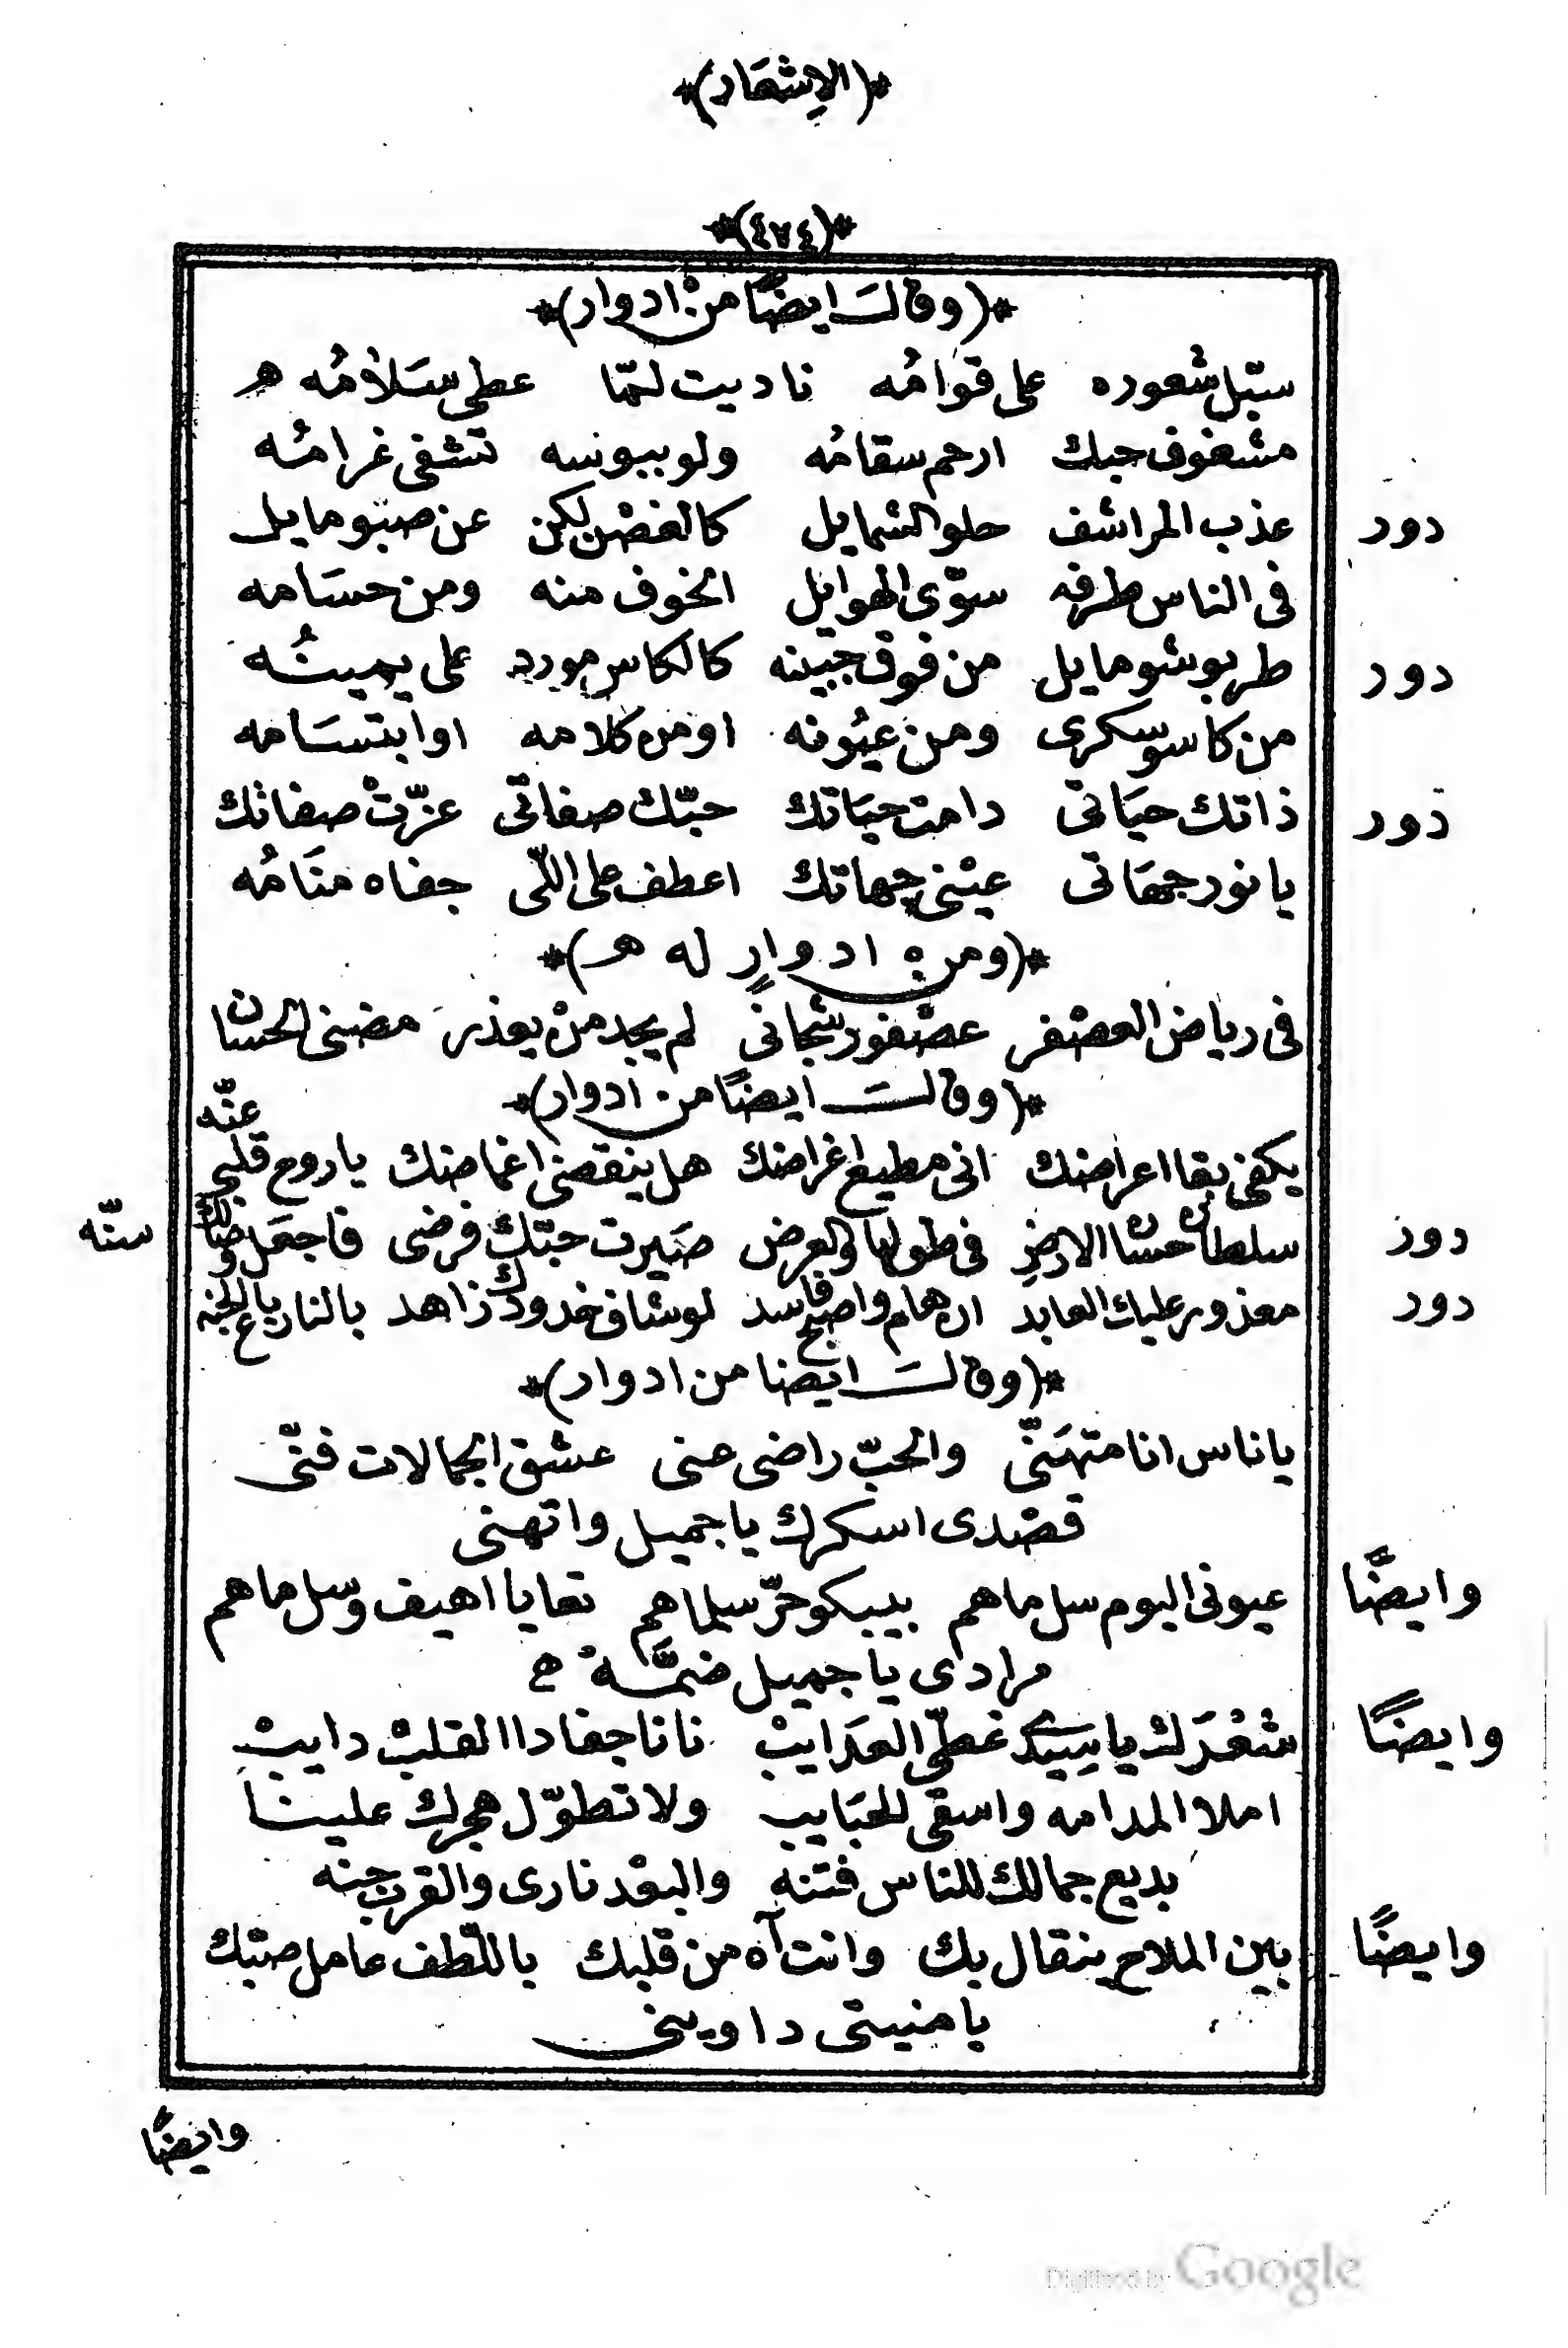 *(الاشعار)*
*(٤٧٤)*
*(وقال ايضًا من ادوار)*
سبّل شعوره على قوامُه ناديت لمّا عطى سَلامُه هـ
مشغوف حبك ارحم سقامُه ولو ببوسه تشفى غرامُه
دور عذب المراشف حلو الشمايل كالغصْن لكن عن صبّو مايل
فى الناس طرفه سوّى الهوايل الخوف منه ومن حسَامه
دور طربوشو مايل من فوق جبينه كالكاس مورد على يمينُه
من كاسو سكرى ومن عيُونه او من كلامه او ابتسَامه
دور ذاتك حيَاتى دامت حيَاتك حبّك صفاتى عزّتْ صفاتك
يا نور جهَاتى عيْنى جهاتك اعطف على اللّى جفاه منَامُه
*(ومن ادوارٍ له هـ)*
فى رياض العصْفر عصْفور شجانى لم يجد منْ يعذر مضنى الحسان
*(وقال ايضًا من ادوار)*
يكفى بقا اعراضك انى مطيع اغراضك هل ينقضى اغماضك يا روح قلبى عنّه
دور سلطان حسْن الارضِ فى طولها والعرض صَيرت حبّك فرضى فاجعَل وصالك سنّه
دور معذور عليك العابد ان هام واصبح فاسد لو شاف خدودك زاهد بالنار باع الجنه
*(وقال ايضا من ادوار)*
يا ناس انا متهَنّى والحبّ راضى عنى عشق الجمالات فنّى
قصْدى اسكرك يا جميل واتهنى
وايضًا عيونى اليوم سل ماهم بيبكو حرّ سلماهم تعايا اهيف وسل ماهم
مرادى يا جميل ضمَّهْ هـ
وايضًا شعْرَك يا سيدى غطّى العَدايبْ نانا جفا دا القلبْ دايبْ
املا المدامه واسقى للحبَايب ولا تطوّل هجرك علينا
بديع جمالك للناس فتنه والبعْد نارى والقرب جنه
وايضًا بين الملاح ينقال بك وانت آه من قلبك باللّطف عامل صبّك
يا منيتى داوينى
وايضًا
Digitized by Google